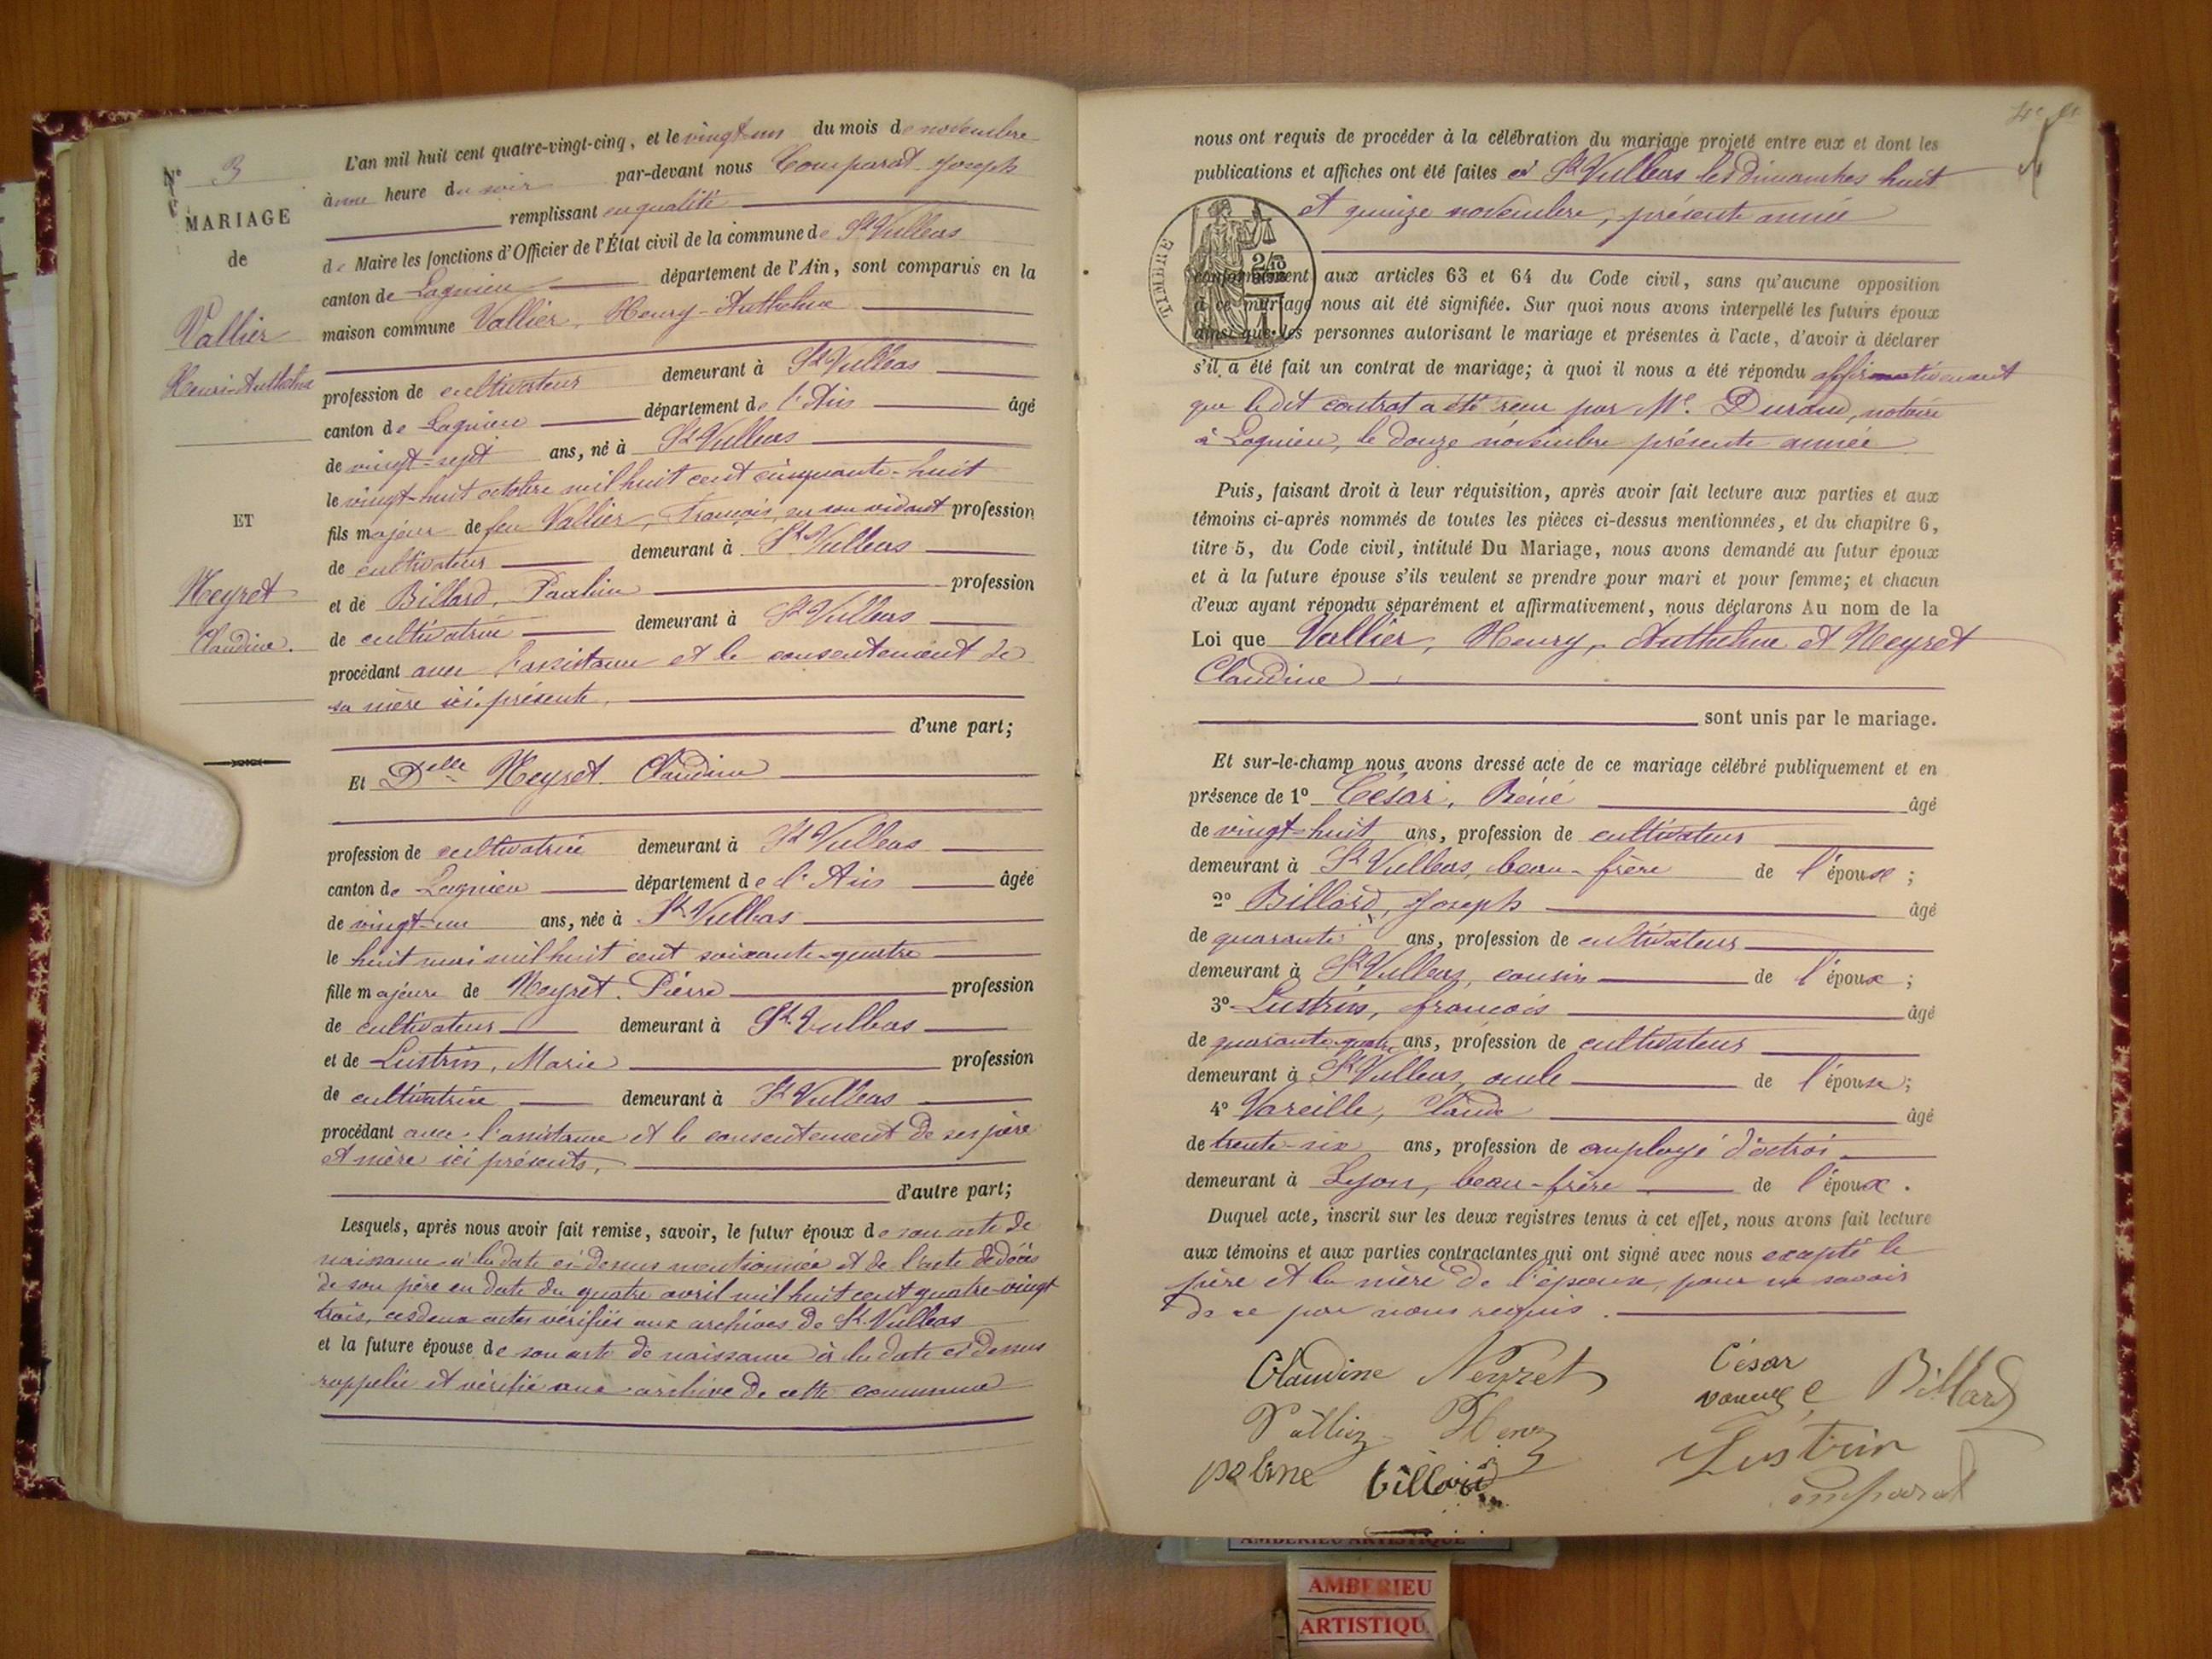 N° 3
MARIAGE
de
Vallier
Henri-Anthelme
ET
Neyret
Claudine.
L'an mil huit cent quatre-vingt-cinq, et le vingt-un du mois de novembre
à une heure du soir par-devant nous Comparat Joseph
remplissant en qualité
de Maire les fonctions d'Officier de l'État civil de la commune de St Vulbas
canton de Lagnieu département de l'Ain, sont comparus en la
maison commune Vallier, Henry-Anthelme
profession de cultivateur demeurant à St Vulbas
canton de Lagnieu département de l'Ain âgé
de vingt-sept ans, né à St Vulbas
le vingt-huit octobre mil huit cent cinquante-huit
fils majeur de feu Vallier, François, en son vivant profession
de cultivateur demeurant à St Vulbas
et de Billard, Pauline profession
de cultivatrice demeurant à St Vulbas
procédant avec l'assistance et le consentement de
sa mère ici présente,
d'une part;
Et Delle Neyret Claudine
profession de cultivatrice demeurant à St Vulbas
canton de Lagnieu département de l'Ain âgée
de vingt-un ans, née à St Vulbas
le huit mai mil huit cent soixante-quatre
fille majeure de Neyret. Pierre profession
de cultivateur demeurant à St Vulbas
et de Lustrin, Marie profession
de cultivatrice demeurant à St Vulbas
procédant avec l'assistance et le consentement de ses père
et mère ici présents,
d'autre part;
Lesquels, après nous avoir fait remise, savoir, le futur époux de son acte de
naissance à la date ci-dessus mentionnée et de l'acte de décès
de son père en date du quatre avril mil huit cent quatre-vingt
trois, ces deux actes vérifiés aux archives de St Vulbas
et la future épouse de son acte de naissance à la date ci-dessus
rappelée et vérifié aux archive de cette commune
nous ont requis de procéder à la célébration du mariage projeté entre eux et dont les
publications et affiches ont été faites à St Vulbas les dimanches huit
et quinze novembre, présente année
TIMBRE
conformément aux articles 63 et 64 du Code civil, sans qu'aucune opposition
à ce mariage nous ait été signifiée. Sur quoi nous avons interpellé les futurs époux
ainsi que les personnes autorisant le mariage et présentes à l'acte, d'avoir à déclarer
s'il a été fait un contrat de mariage; à quoi il nous a été répondu affirmativement
que le dit contrat a été reçu par Me. Durand, notaire
à Lagnieu, le douze novembre présente année
Puis, faisant droit à leur réquisition, après avoir fait lecture aux parties et aux
témoins ci-après nommés de toutes les pièces ci-dessus mentionnées, et du chapitre 6,
titre 5, du Code civil, intitulé Du Mariage, nous avons demandé au futur époux
et à la future épouse s'ils veulent se prendre pour mari et pour femme; et chacun
d'eux ayant répondu séparément et affirmativement, nous déclarons Au nom de la
Loi que Vallier, Henry, Anthelme et Neyret
Claudine
sont unis par le mariage.
Et sur-le-champ nous avons dressé acte de ce mariage célébré publiquement et en
présence de 1° César, Réné âgé
de vingt-huit ans, profession de cultivateur
demeurant à St Vulbas, beau-frère de l'épouse;
2° Billard, Joseph âgé
de quarante ans, profession de cultivateur
demeurant à St Vulbas, cousin de l'époux;
3° Lustrin, françois âgé
de quarante-quatre ans, profession de cultivateur
demeurant à St Vulbas, oncle de l'épouse;
4° Vareille, Claude âgé
de trente-six ans, profession de employé d'octroi
demeurant à Lyon, beau-frère de l'époux.
Duquel acte, inscrit sur les deux registres tenus à cet effet, nous avons fait lecture
aux témoins et aux parties contractantes qui ont signé avec nous excepté le
père et la mère de l'épouse, pour ne savoir
de ce par nous requis.
Claudine Neyret César
Billard
Vallier Henry
Lustrin
poline billard
Comparat
AMBERIEU ARTISTIQUE
AMBERIEU
ARTISTIQU